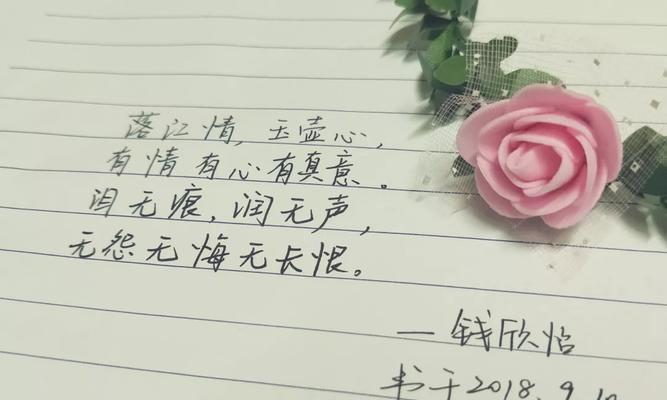 落江情，玉壶心，
有情有心有真意。
泪无痕，润无声，
无怨无悔无长恨。
—钱欣怡
书于2018.9.10